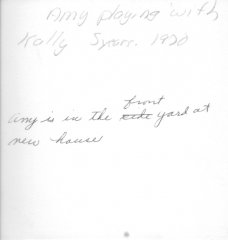 Amy playing with
Kally Syrarr. 1920
front
Amy is in the side yard at
new house